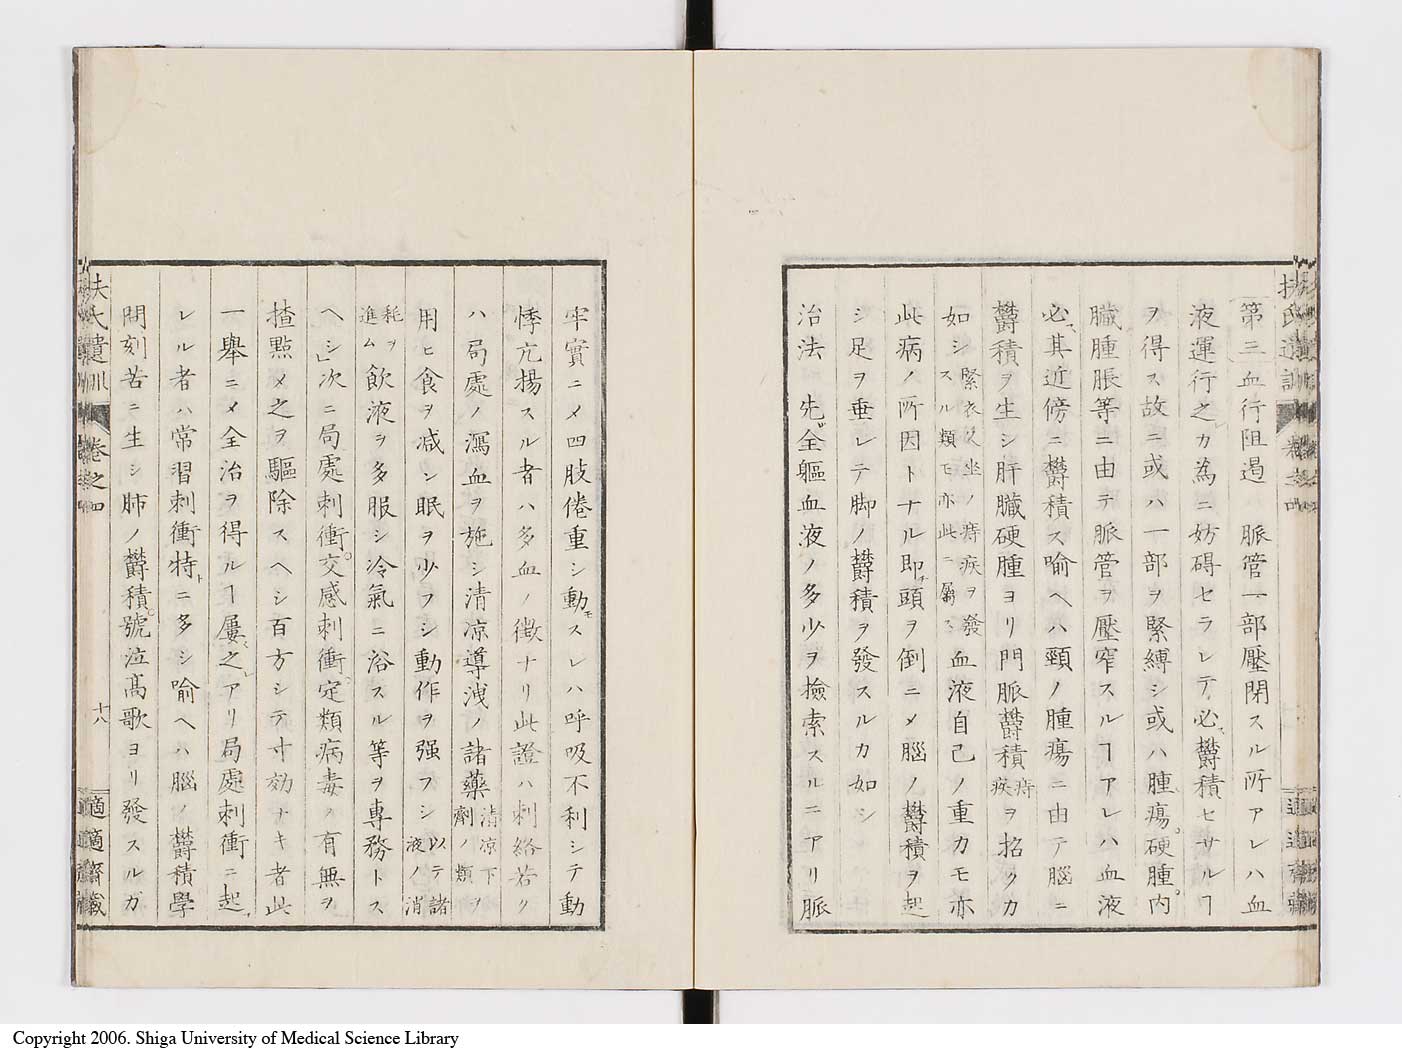 第三血行阻遏　脈管一部壓閉スル所アレハ血
液運行之レカ為ニ妨碍セラレテ必ス欝積セサルヿ
ヲ得ス故ニ或ハ一部ヲ緊縛シ或ハ腫瘍。硬腫。内
臓腫脹等ニ由テ脈管ヲ壓窄スルヿアレハ血液
必ス其近傍ニ欝積ス喩ヘハ頸ノ腫瘍ニ由テ腦ニ
欝積ヲ生シ肝臓硬腫ヨリ門脈欝積痔疾ヲ招クカ
如シ緊衣久坐ノ痔疾ヲ發スル類モ亦此ニ屬ス血液自己ノ重力モ亦
此病ノ所因トナル即チ頭ヲ倒ニメ腦ノ欝積ヲ起
シ足ヲ垂レテ脚ノ欝積ヲ發スルカ如シ
治法　先ツ全軀血液ノ多少ヲ撿索スルニアリ脈
牢實ニメ四肢倦重シ動モスレハ呼吸不利シテ動
悸亢揚スル者ハ多血ノ徴ナリ此證ハ刺絡若ク
ハ局處ノ瀉血ヲ施シ清凉導洩ノ諸藥清凉下劑ノ類ヲ
用ヒ食ヲ减シ眠ヲ少フシ動作ヲ强フシ以テ諸液ノ消
耗ヲ進ム飲液ヲ多服シ冷氣ニ浴スル等ヲ專務トス
ヘシ」次ニ局處刺衝。交感刺衝、定類病毒ノ有無ヲ
揸㸃メ之ヲ驅除スヘシ百方シテ寸効ナキ者此
一舉ニメ全治ヲ得ルヿ屢之レアリ局處刺衝ニ起
レル者ハ常習刺衝特ニ多シ喻ヘハ腦ノ欝積學
問刻苦ニ生シ肺ノ欝積。號泣髙歌ヨリ發スルガ
扶氏遺訓　卷之四　十八　適適齋藏